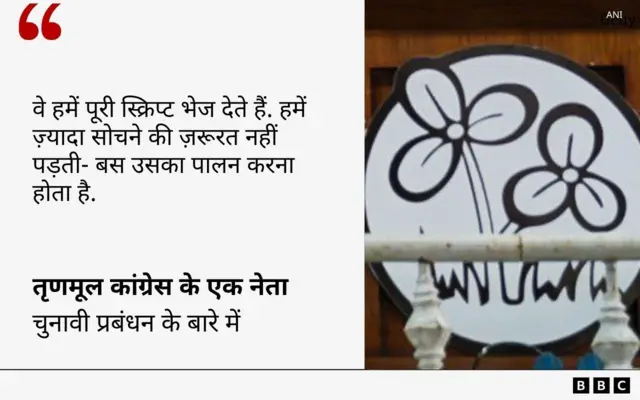 ANI
वे हमें पूरी स्क्रिप्ट भेज देते हैं. हमें
ज़्यादा सोचने की ज़रूरत नहीं
पड़ती- बस उसका पालन करना
होता है.
तृणमूल कांग्रेस के एक नेता
चुनावी प्रबंधन के बारे में
BBC